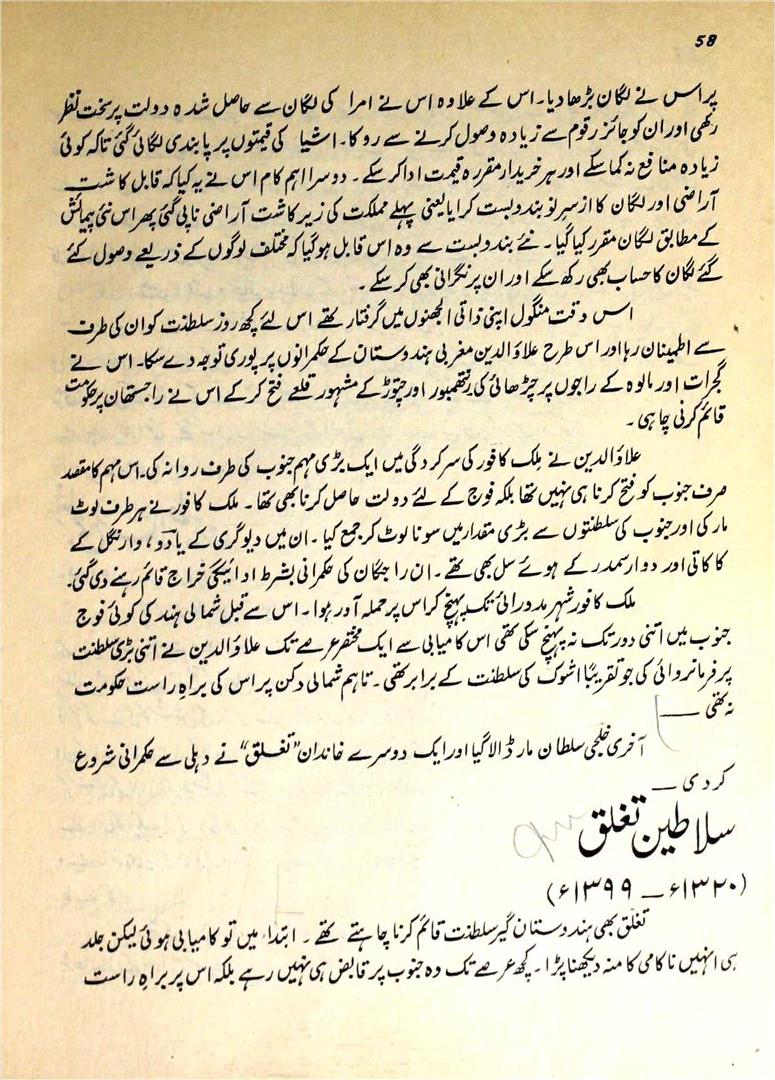 58
پر اس نے لگان بڑھا دیا۔ اس کے علاوہ اس نے امرا کی لگان سے حاصل شدہ دولت پر سخت نظر
رکھی اور ان کو جائز رقوم سے زیادہ وصول کرنے سے روکا۔ اشیا کی قیمتوں پر پابندی لگائی گئی تاکہ کوئی
زیادہ منافع نہ کما سکے اور ہر خریدار مقررہ قیمت ادا کر سکے۔ دوسرا اہم کام اس نے یہ کیا کہ قابل کاشت
آراضی اور لگان کا ازسرِ نو بندوبست کرایا یعنی پہلے مملکت کی زیر کاشت آراضی ناپی گئی پھر اس نئی پیمائش
کے مطابق لگان مقرر کیا گیا۔ نئے بندوبست سے وہ اس قابل ہو گیا کہ مختلف لوگوں کے ذریعے وصول کئے
گئے لگان کا حساب بھی رکھ سکے اور ان پر نگرانی بھی کر سکے۔
اس وقت منگول اپنی ذاتی الجھنوں میں گرفتار تھے اس لئے کچھ روز سلطنت کو ان کی طرف
سے اطمینان رہا اور اس طرح علاؤالدین مغربی ہندوستان کے حکمرانوں پر پوری توجہ دے سکا۔ اس نے
گجرات اور مالوہ کے راجوں پر چڑھائی کی رنتھمبور اور چتوڑ کے مشہور قلعے فتح کر کے اس نے راجستھان پر حکومت
قائم کرنی چاہی۔
علاؤالدین نے ملک کافور کی سرکردگی میں ایک بڑی مہم جنوب کی طرف روانہ کی۔ اس مہم کا مقصد
صرف جنوب کو فتح کرنا ہی نہیں تھا بلکہ فوج کے لئے دولت حاصل کرنا بھی تھا۔ ملک کافور نے ہر طرف لوٹ
مار کی اور جنوب کی سلطنتوں سے بڑی مقدار میں سونا لوٹ کر جمع کیا۔ ان میں دیوگری کے یادو، وارنگل کے
کاکاتی اور دوارسمدر کے ہوئے سل بھی تھے۔ ان راجگان کی حکمرانی بشرط ادائیگی خراج قائم رہنے دی گئی۔
ملک کافور شہر مدورائی تک پہنچ کر اس پر حملہ آور ہوا۔ اس سے قبل شمالی ہند کی کوئی فوج
جنوب میں اتنی دور تک نہ پہنچ سکی تھی اس کامیابی سے ایک مختصر عرصے تک علاؤالدین نے اتنی بڑی سلطنت
پر فرمانروائی کی جو تقریباً اشوک کی سلطنت کے برابر تھی۔ تاہم شمالی دکن پر اس کی براہِ راست حکومت
نہ تھی ـــ
آخری خلجی سلطان مار ڈالا گیا اور ایک دوسرے خاندان "تغلق" نے دہلی سے حکمرانی شروع
کردی ـــ
سلاطین تغلق
(۱۳۲۰ء ـــ ۱۳۹۹ء)
تغلق بھی ہندوستان گیر سلطنت قائم کرنا چاہتے تھے۔ ابتدا میں تو کامیابی ہوئی لیکن جلد
ہی انہیں ناکامی کا منہ دیکھنا پڑا۔ کچھ عرصے تک وہ جنوب پر قابض ہی نہیں رہے بلکہ اس پر براہِ راست